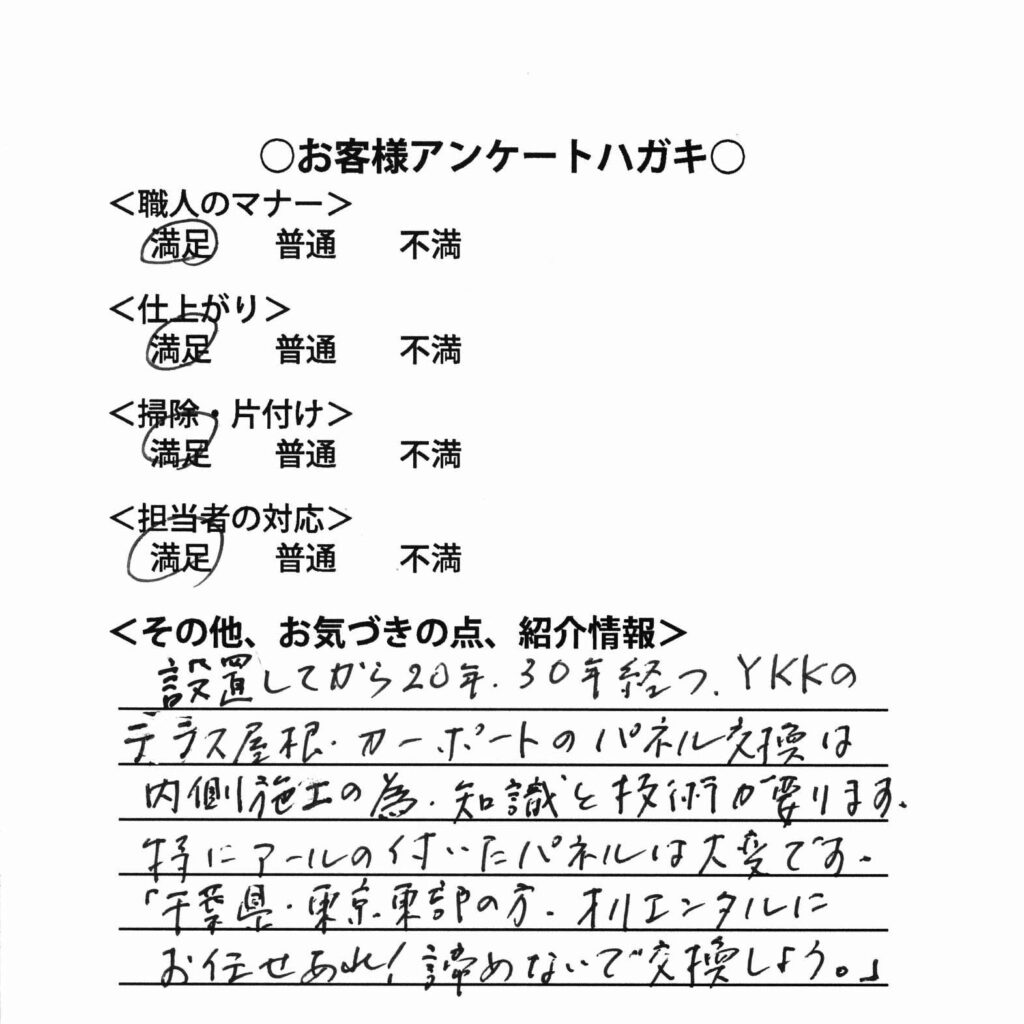 ○お客様アンケートハガキ○
＜職人のマナー＞
満足 普通 不満
＜仕上がり＞
満足 普通 不満
＜掃除・片付け＞
満足 普通 不満
＜担当者の対応＞
満足 普通 不満
＜その他、お気づきの点、紹介情報＞
設置してから20年、30年経つ、YKKの
テラス屋根・カーポートのパネル交換は
内側施工の為、知識と技術が要ります。
特にアールの付いたパネルは大変です。
「千葉県・東京東部の方、オリエンタルに
お任せあれ！諦めないで交換しよう。」